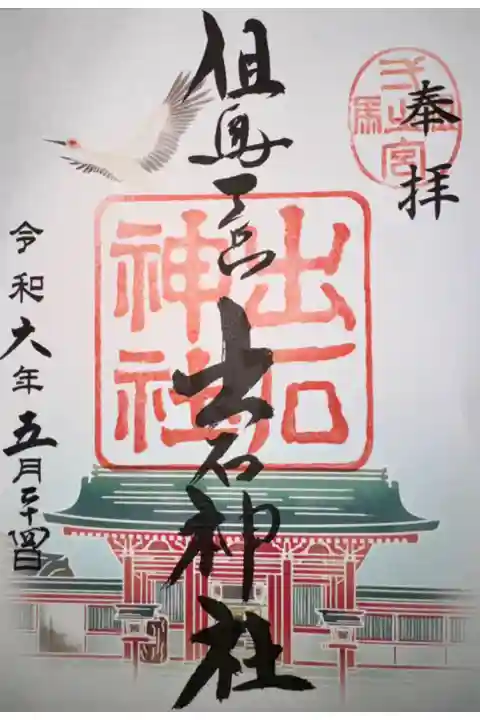 奉拝
但馬一宮
但馬一宮 出石神社
出石
神社
令和六年五月二十四日